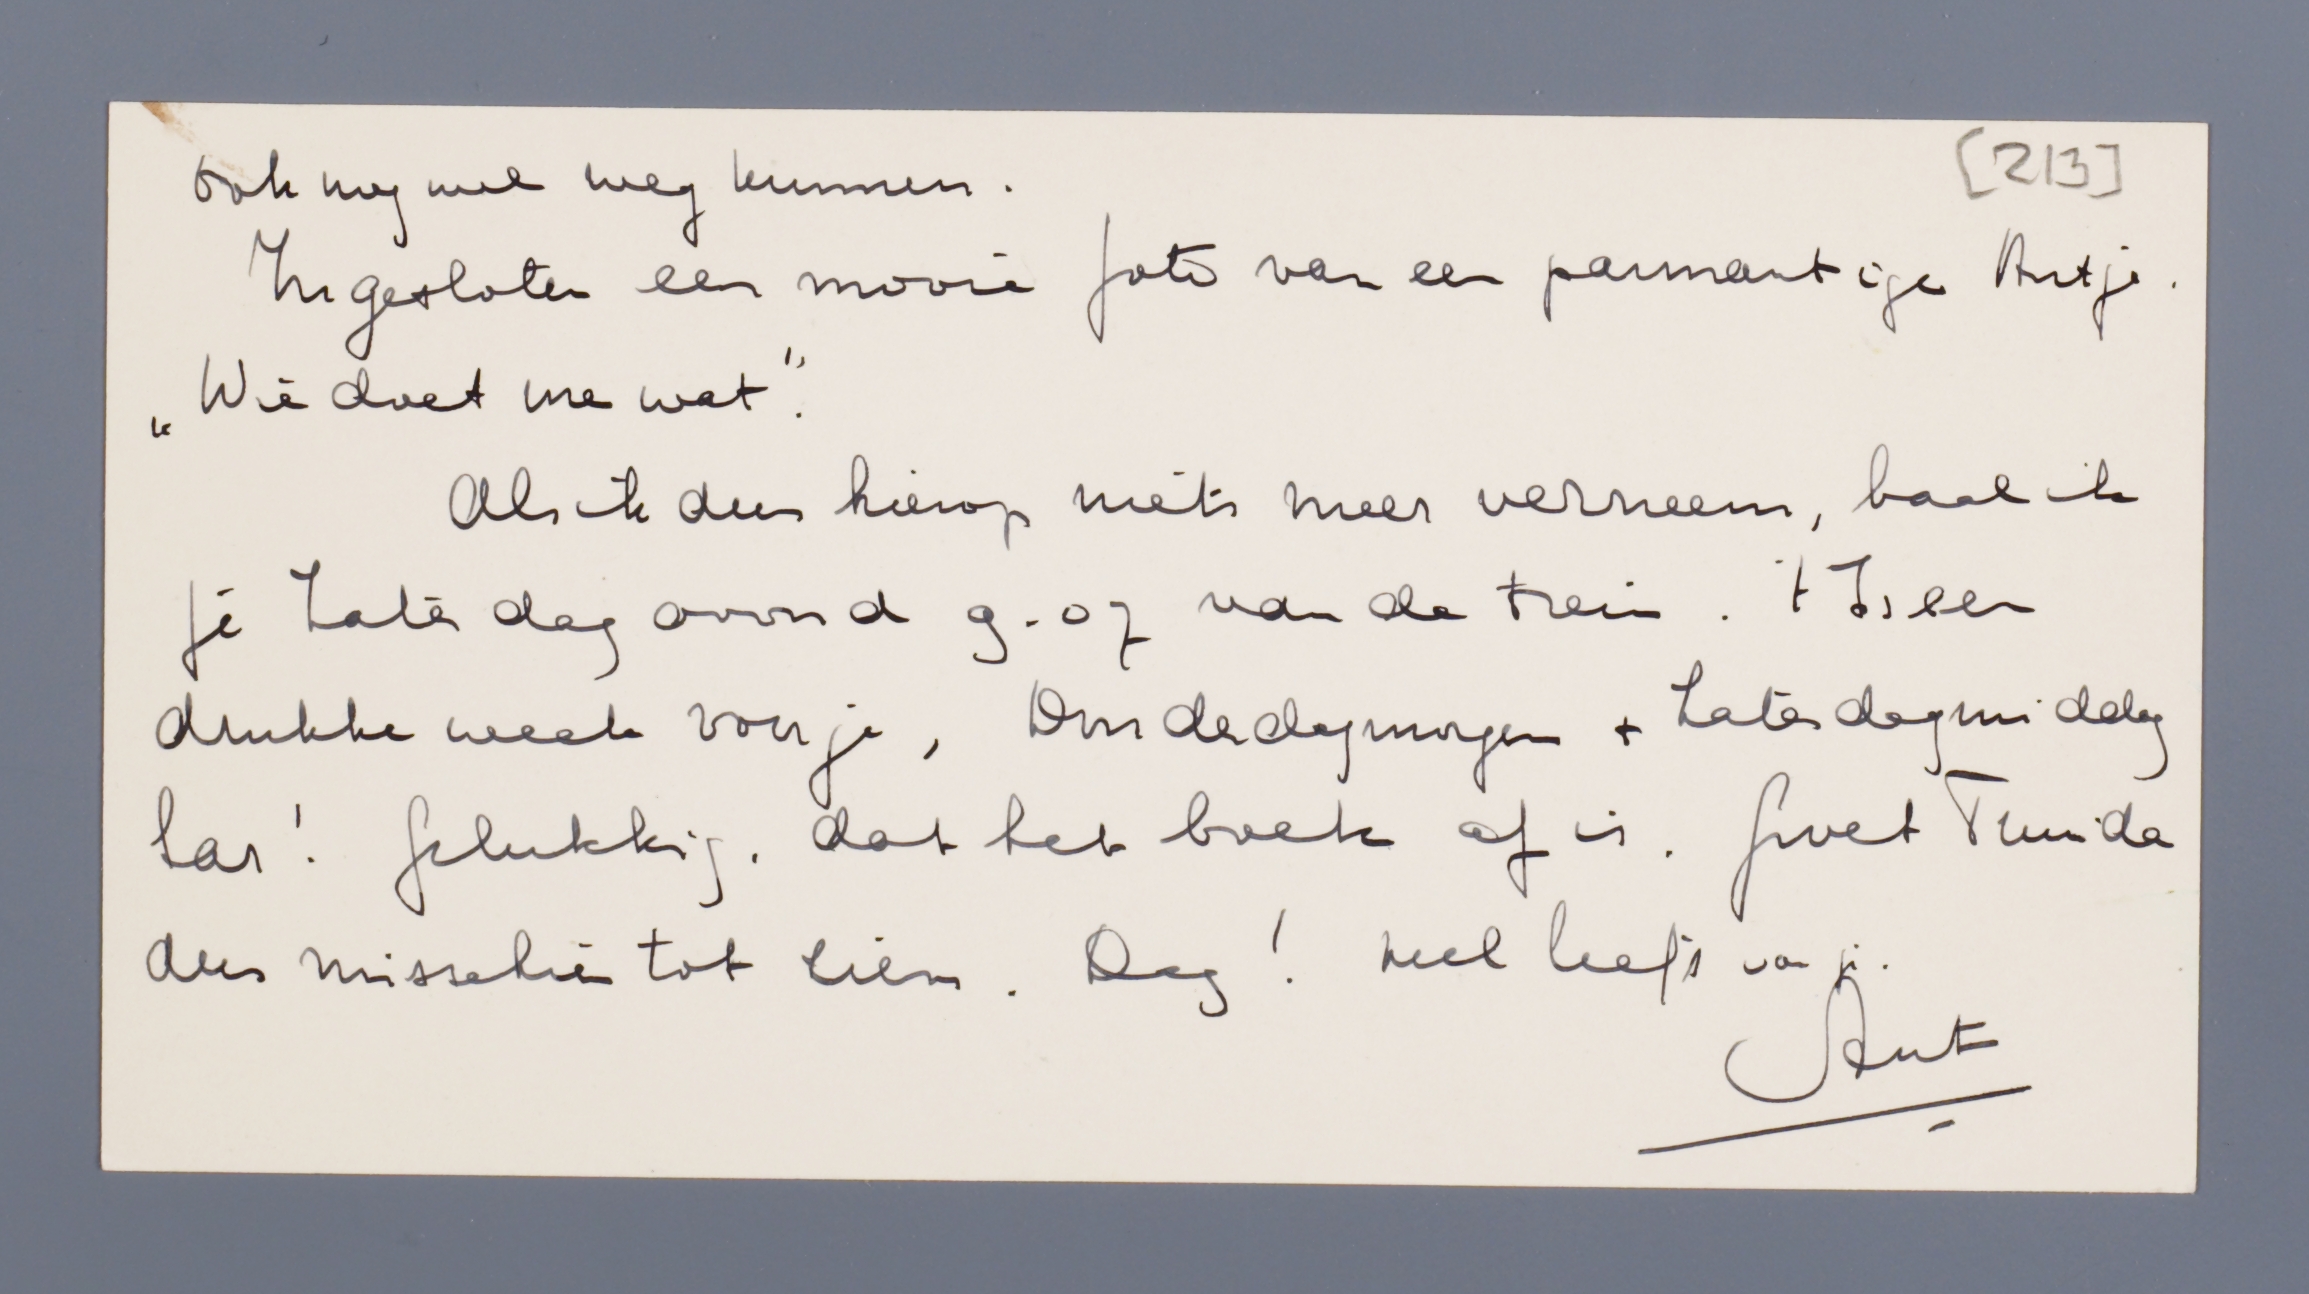 [213]
ook nog wel weg kunnen.
Ingesloten een mooie foto van een parmantige Antje.
„Wie doet me wat”.
Als ik dus hierop niets meer verneem, haal ik
je Zaterdagavond 9.07 van de trein. 't Is een
drukke week voor je, Donderdagmorgen + Zaterdagmiddag
les! Gelukkig, dat het boek af is. Groet Truida
dus misschien tot ziens. Dag! veel liefs van je.
Ant